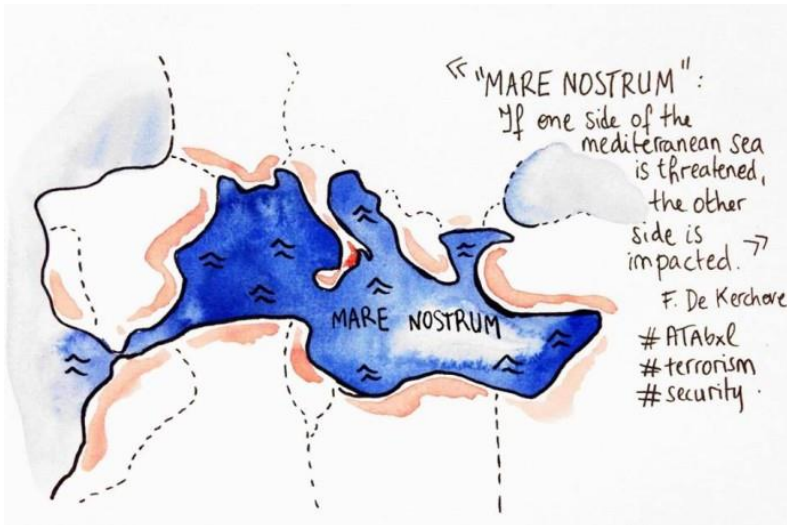 « "MARE NOSTRUM" :
If one side of the
mediterranean sea
is threatened,
the other
side is
impacted. »
F. De Kerchove
# ATAbxl
# terrorism
# security.
MARE NOSTRUM